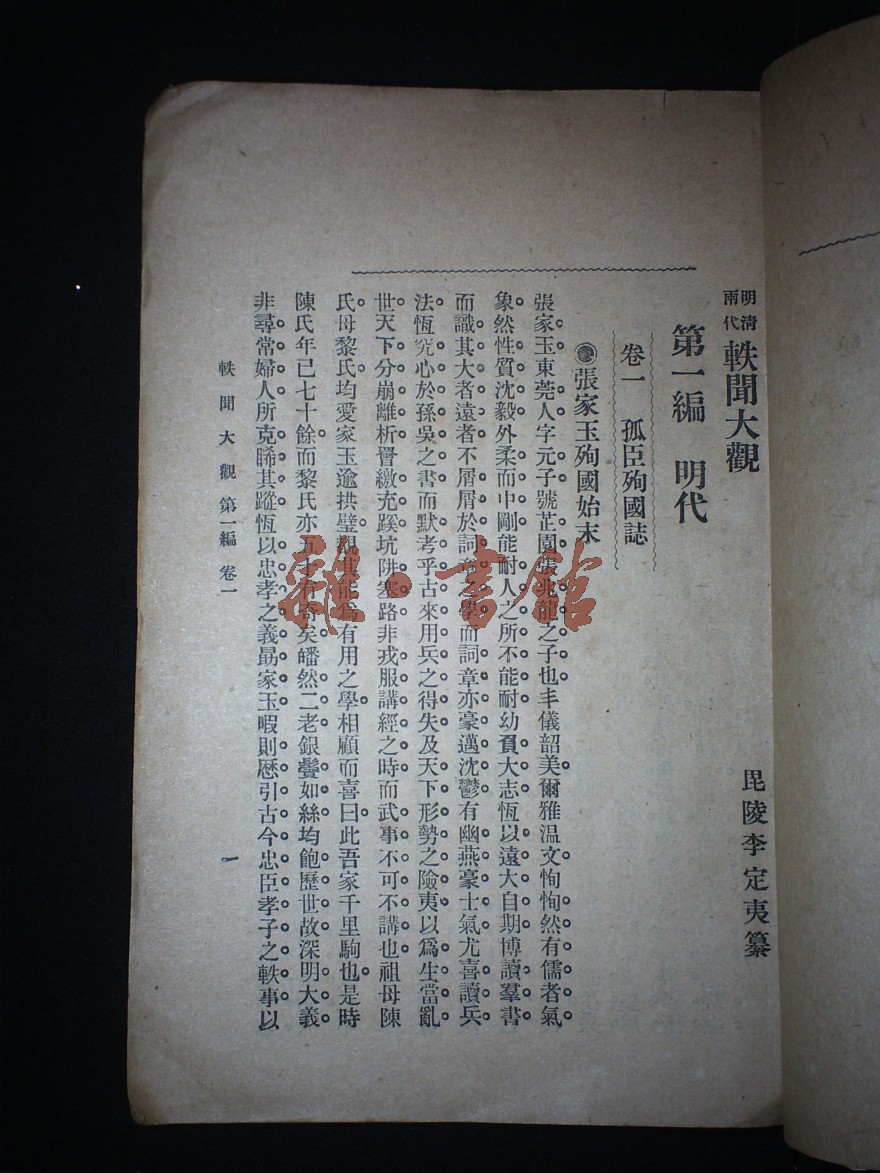 明清兩代軼聞大觀
毘陵李定夷纂
第一編 明代
卷一 孤臣殉國誌
張家玉殉國始末
張家玉東莞人字元子號芷園張兆龍之子也丰儀韶美爾雅温文恂恂然有儒者氣
象然性質沈毅外柔而中剛能耐人之所不能耐幼負大志恆以遠大自期博讀羣書
而識其大者遠者不屑屑於詞章之學而詞章亦豪邁沈鬱有幽燕豪士氣尤喜讀兵
法恆究心於孫吳之書而默考乎古來用兵之得失及天下形勢之險夷以爲生當亂
世天下分崩離析罾繳充蹊坑阱塞路非戎服講經之時而武事不可不講也祖母陳
氏母黎氏均愛家玉逾拱璧覩其能爲有用之學相顧而喜曰此吾家千里駒也是時
陳氏年已七十餘而黎氏亦五十有奇矣皤然二老銀鬢如絲均飽歷世故深明大義
非尋常婦人所克睎其蹤恆以忠孝之義勗家玉暇則歷引古今忠臣孝子之軼事以
軼聞大觀 第一編 卷一
一
雜·書館